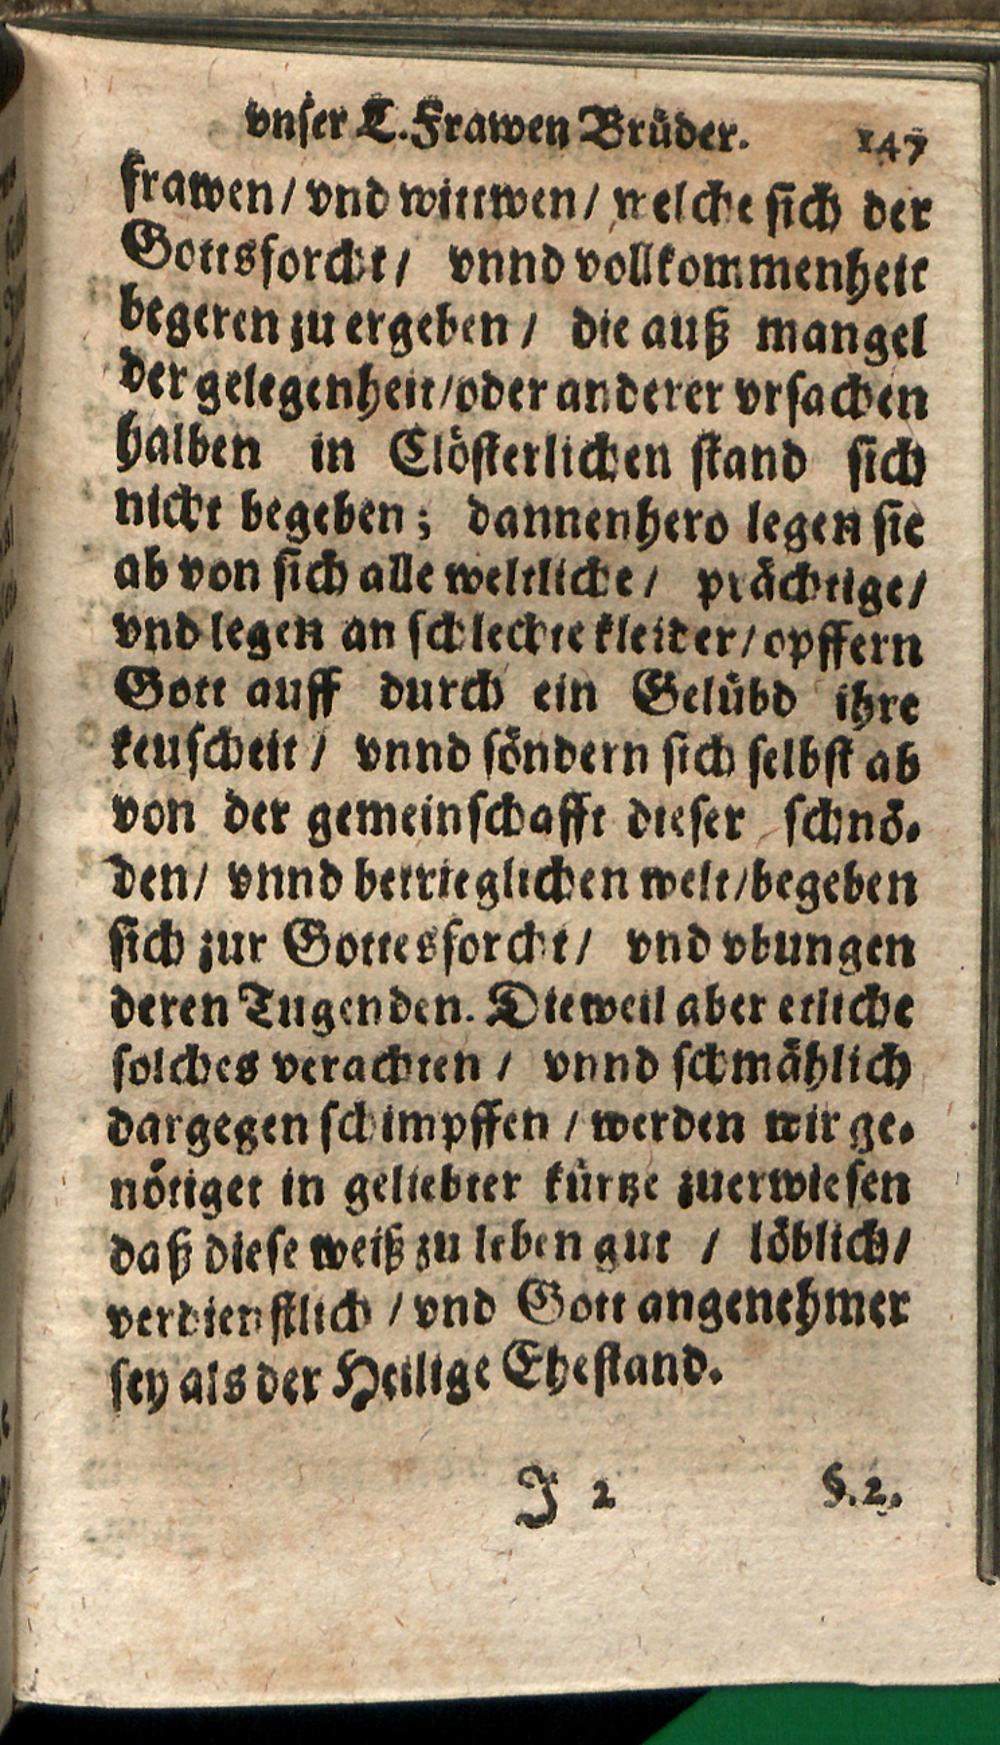 vnser L. Frawen Brüder. 147
frawen / vnd wittwen / welche sich der
Gottsforcht / vnnd vollkommenheit
begeren zu ergeben / die auß mangel
der gelegenheit / oder anderer vrsachen
halben in Clösterlichen stand sich
nicht begeben ; dannenhero legen sie
ab von sich alle weltliche / prächtige /
vnd legen an schlechte kleider / opffern
Gott auff durch ein Gelübd ihre
keuscheit / vnnd söndern sich selbst ab
von der gemeinschafft dieser schnö-
den / vnnd betrieglichen welt / begeben
sich zur Gottesforcht / vnd vbungen
deren Tugenden. Dieweil aber etliche
solches verachten / vnnd schmählich
dargegen schimpffen / werden wir ge-
nötiget in geliebter kürtze zuerwiesen
daß diese weiß zu leben gut / löblich /
verdienstlich / vnd Gott angenehmer
sey als der Heilige Ehestand.
J 2 §. 2.